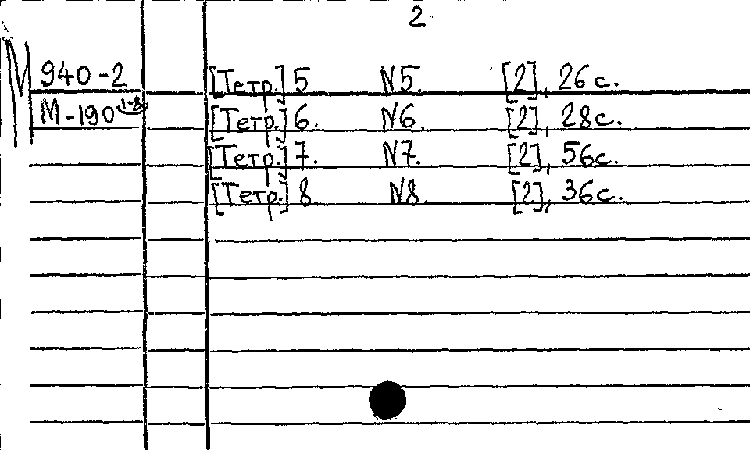 2
М 940-2 [Тетр.] 5 N5. [2], 26 с.
М-190 1-8 [Тетр.] 6. N6. [2], 28 с.
[Тетр.] 7. N7. [2], 56 с.
[Тетр.] 8 N8. [2], 36 с.